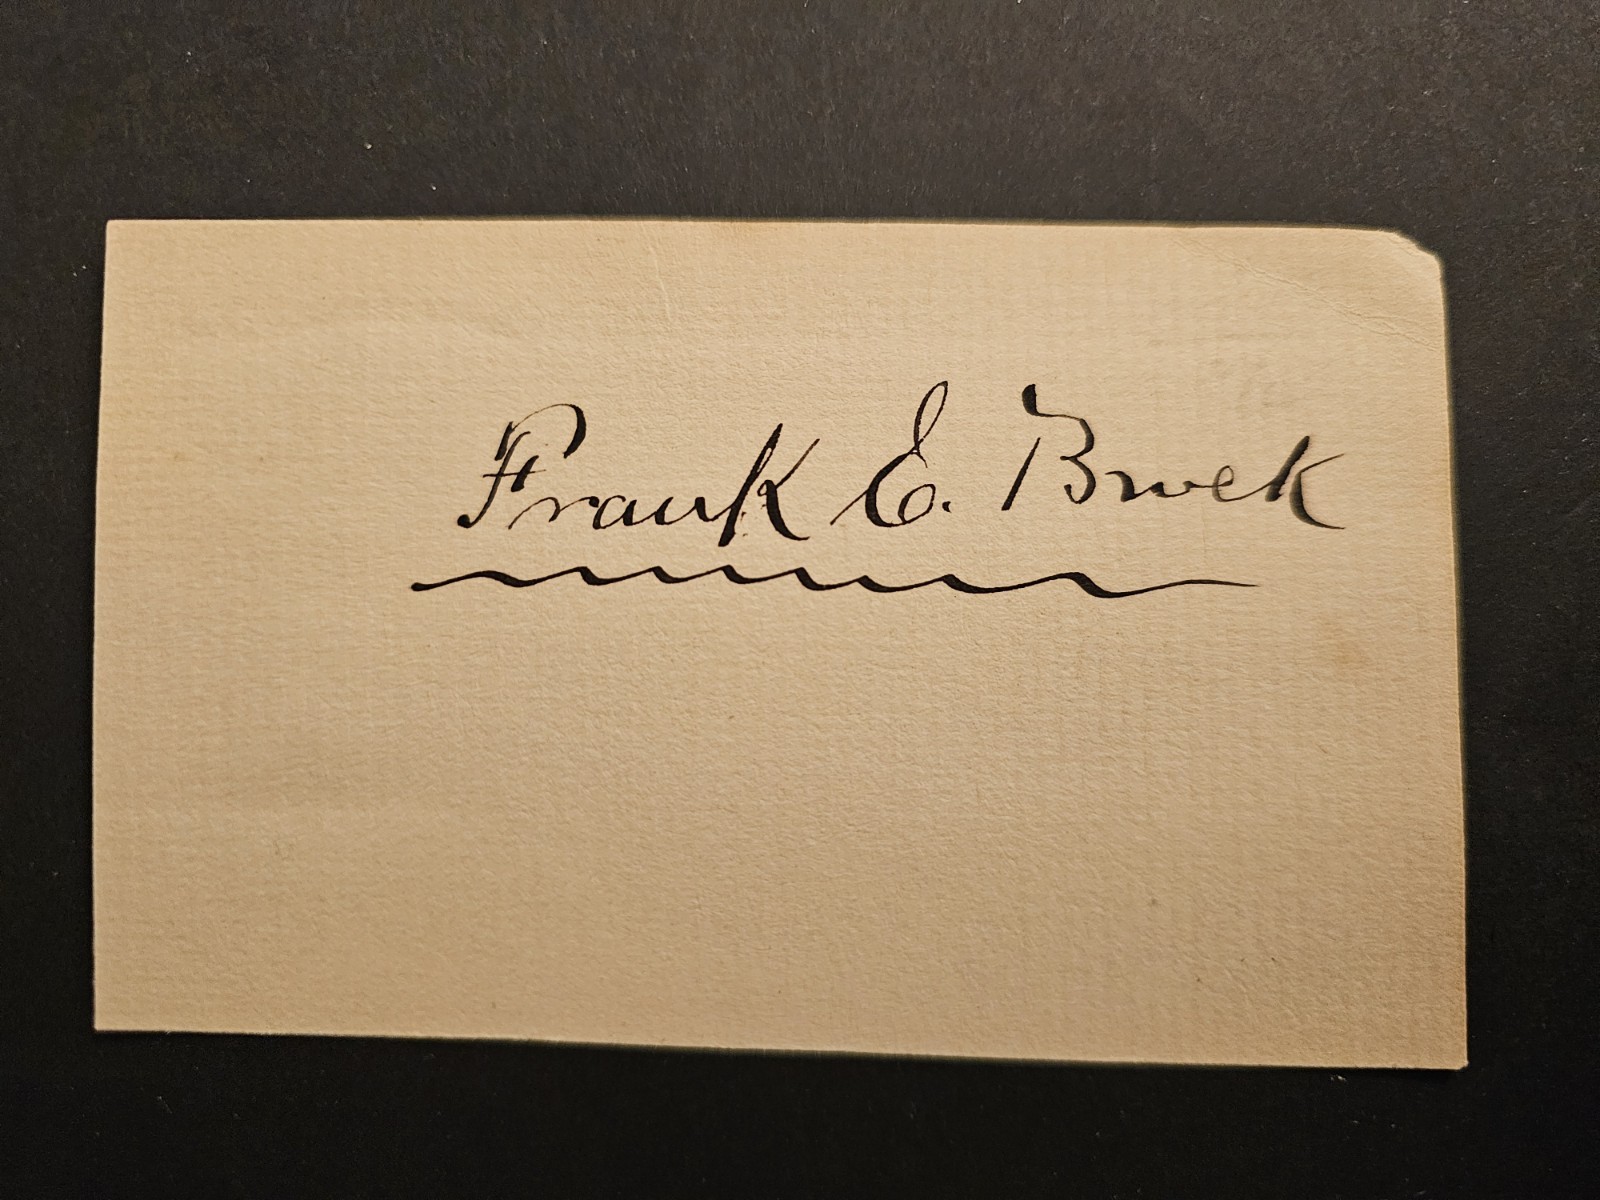 Frank E. Brock